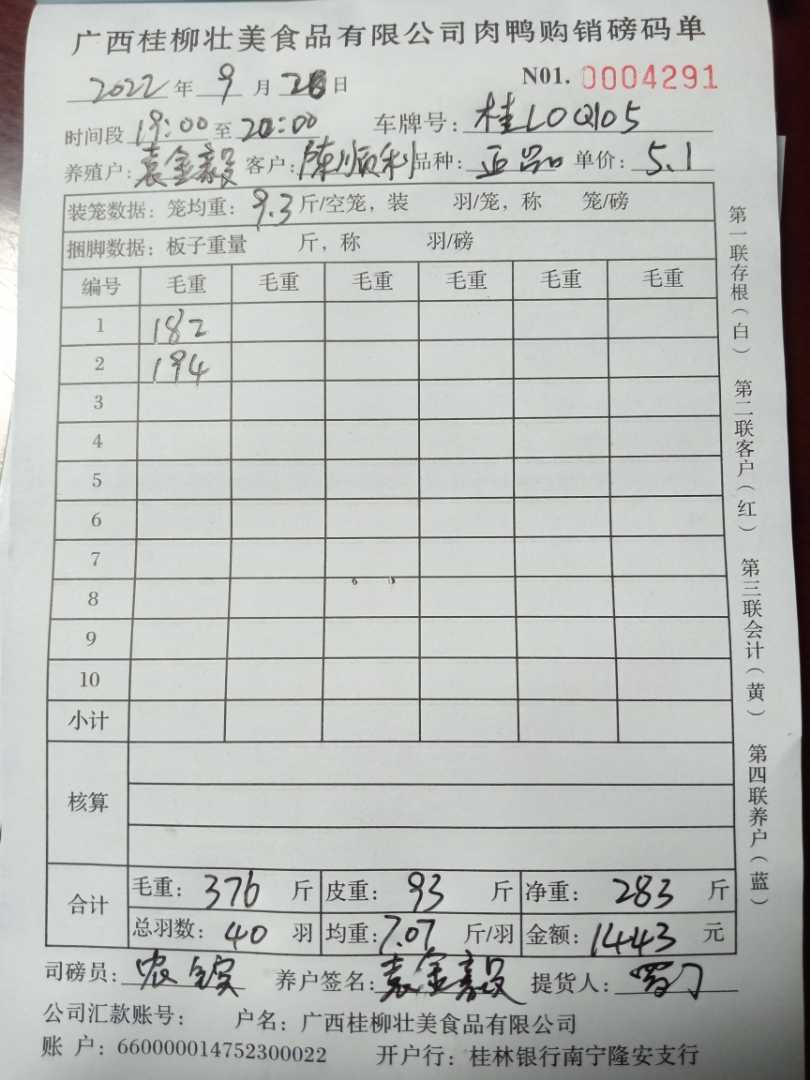 广西桂柳壮美食品有限公司肉鸭购销磅码单
2022年 9 月 28 日 N01. 0004291
时间段 19:00 至 20:00 车牌号: 桂L0Q105
养殖户: 袁金毅 客户: 陈顺利 品种: 正品 单价: 5.1
装笼数据: 笼均重: 9.3 斤/空笼, 装 羽/笼, 称 笼/磅
捆脚数据: 板子重量 斤, 称 羽/磅
编号 毛重 毛重 毛重 毛重 毛重 毛重
1 182
2 194
3
4
5
6
7
8
9
10
小计
核算
合计 毛重: 376 斤 皮重: 93 斤 净重: 283 斤
总羽数: 40 羽 均重: 7.07 斤/羽 金额: 1443 元
司磅员: 养户签名: 袁金毅 提货人:
公司汇款账号: 户名: 广西桂柳壮美食品有限公司
账 户: 660000014752300022 开户行: 桂林银行南宁隆安支行
第一联存根(白) 第二联客户(红) 第三联会计(黄) 第四联养户(蓝)